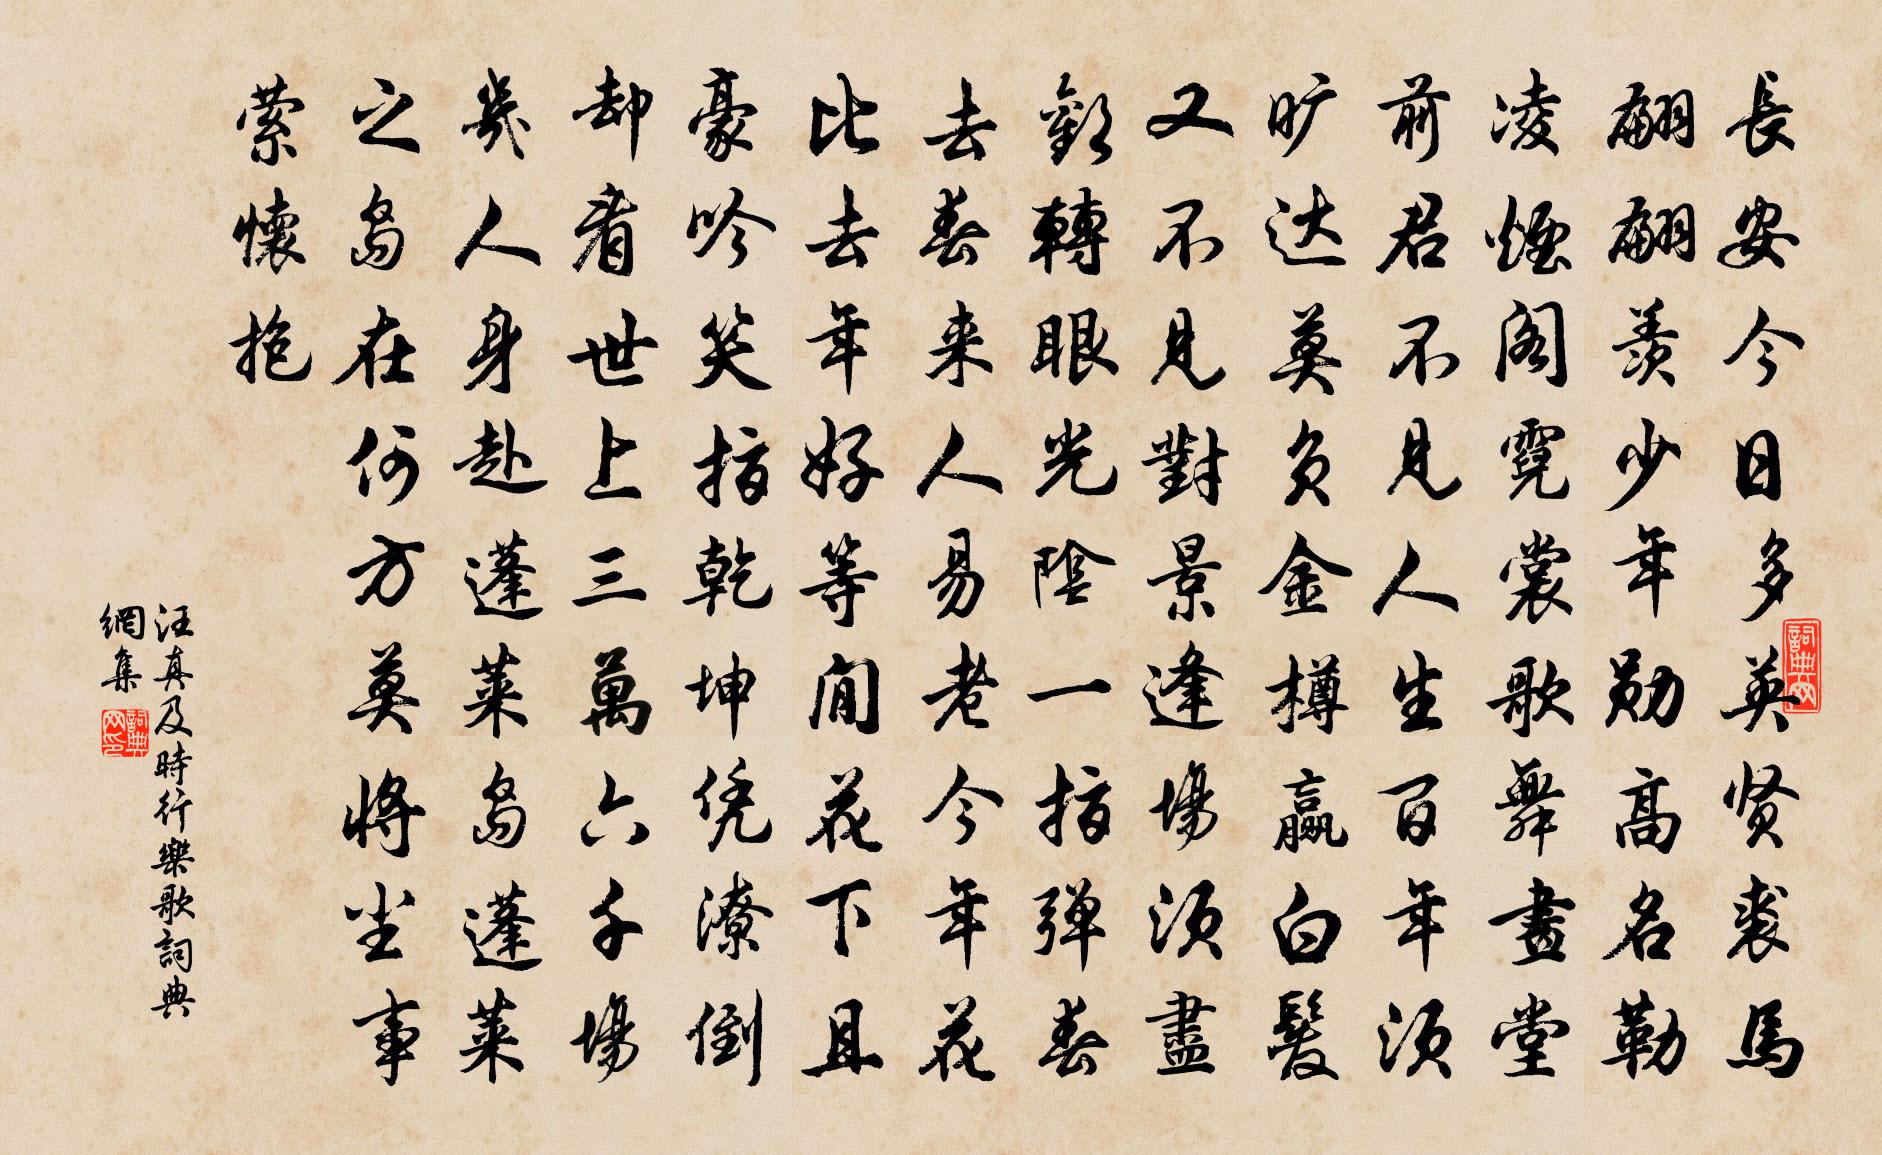 長安今日多英贤裘馬
翩翩羨少年勋高名勒
凌煙阁霓裳歌舞畫堂
前君不見人生百年须
旷达莫负金樽赢白髮
又不見對景逢場须盡
歡轉眼光陰一指弹春
去春来人易老今年花
比去年好等闲花下且
豪吟笑指乾坤凭潦倒
却看世上三萬六千場
幾人身赴蓬莱岛蓬莱
之岛在何方莫将尘事
萦懷抱
汪真及時行樂歌詞典
網集
詞典网
詞典网印